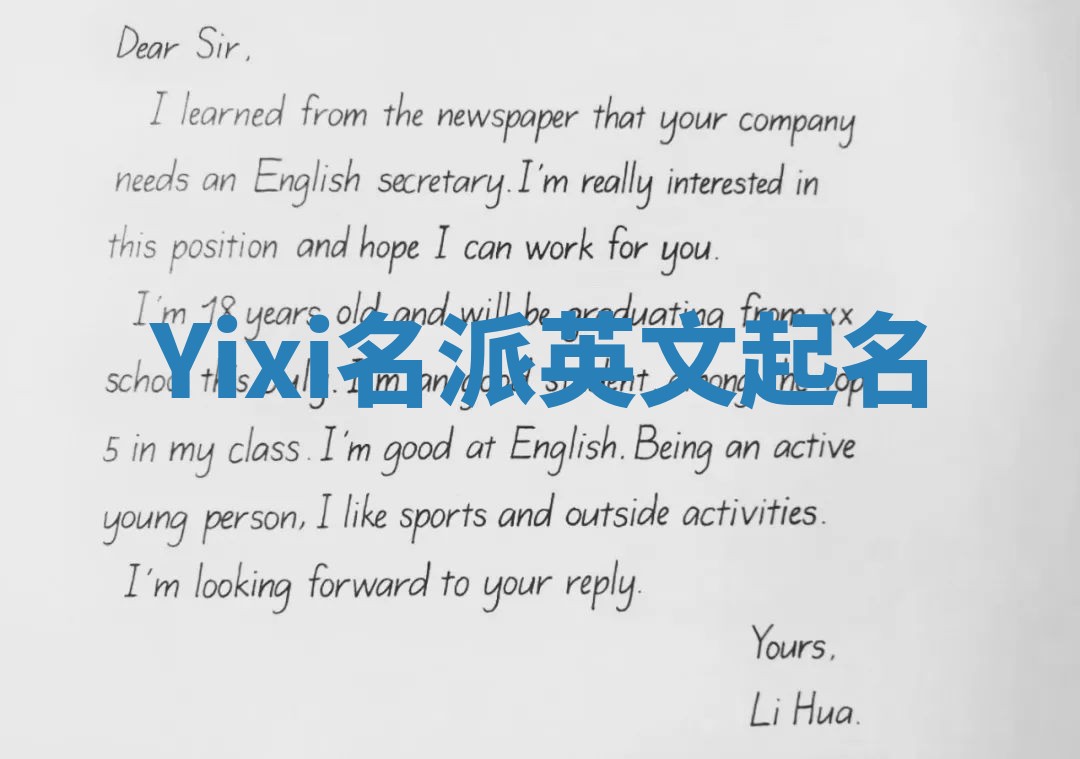 Dear Sir,
I learned from the newspaper that your company
needs an English secretary. I'm really interested in
this position and hope I can work for you.
I'm 18 years old and will be graduating from xx
Yixi名派英文起名
school this July. I'm an good student among the top
5 in my class. I'm good at English. Being an active
young person, I like sports and outside activities.
I'm looking forward to your reply.
Yours,
Li Hua.